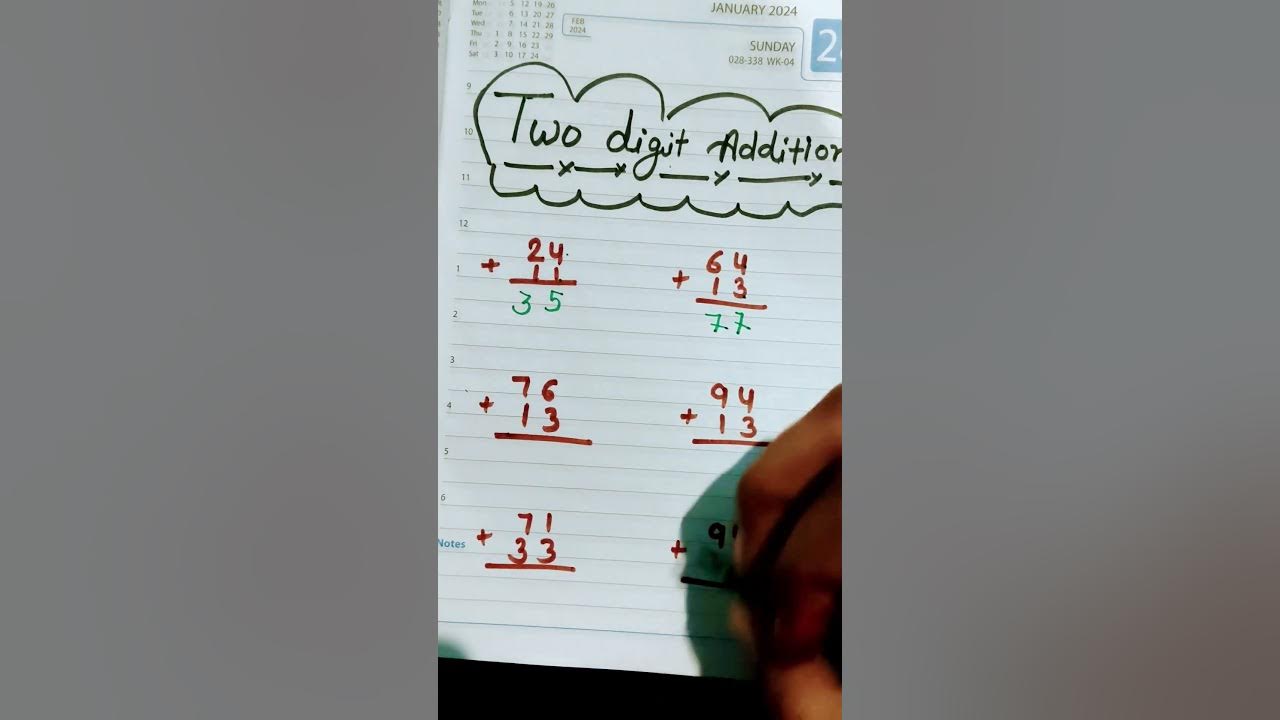 Mon 5 12 19 26
Tue 6 13 20 27
Wed 7 14 21 28
Thu 1 8 15 22 29
Fri 2 9 16 23
Sat 3 10 17 24
FEB
2024
JANUARY 2024
SUNDAY
028-338 WK-04
9
10
11
12
1
2
3
4
5
6
Notes
Two digit Addition
24
+ 11
35
64
+ 13
77
76
+ 13
94
+ 13
71
+ 33
9
+